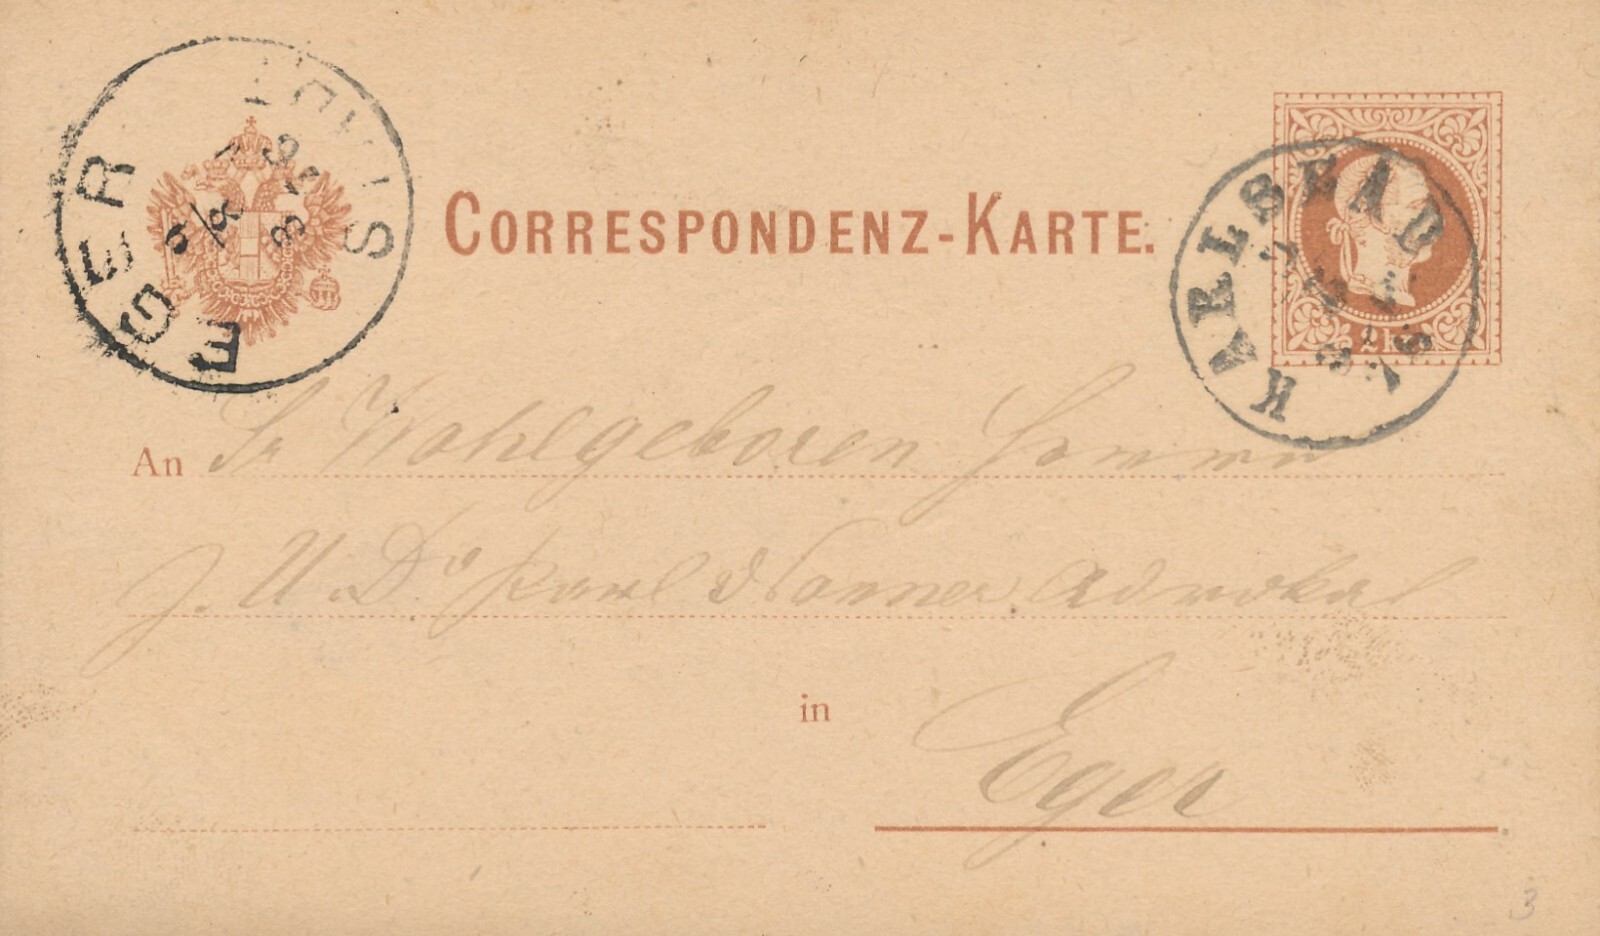 EGER
CORRESPONDENZ-KARTE.
KARLSBAD
2 K
An Sr Wohlgeboren Herrn
J. U. Dr Karl Advokat
in Eger
3